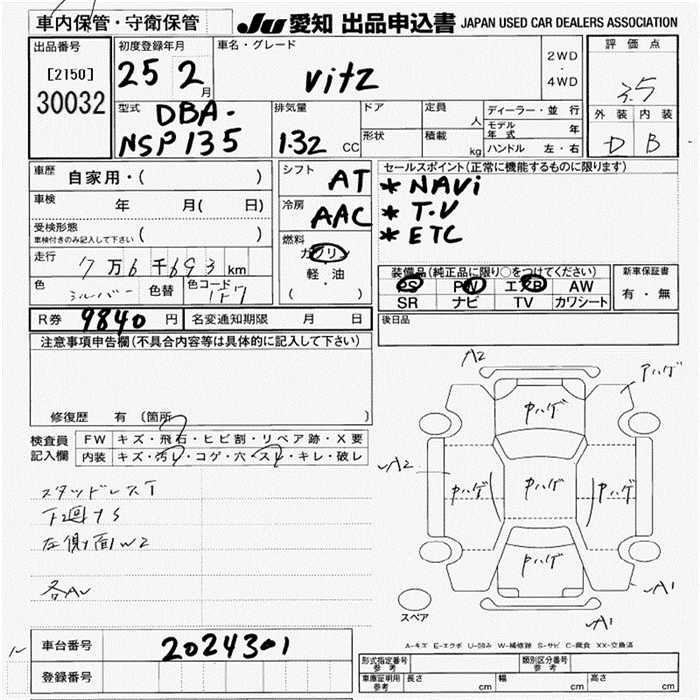 車内保管・守衛保管
JU 愛知 出品申込書 JAPAN USED CAR DEALERS ASSOCIATION
出品番号
[2150]
30032
初度登録年月
25 2月
車名・グレード
Vitz
2WD
・
4WD
評価点
3.5
外装 内装
D B
型式
DBA-
NSP135
排気量
1.32 CC
ドア
形状
定員 人
積載 kg
ディーラー・並行
モデル年式 年
ハンドル 左・右
車歴 自家用・( )
車検 年 月( 日)
受検形態
車検付きのみ記入して下さい ( )
走行 7万6千693km
色 シルバー 色替 色コード 1F7
シフト AT
冷房 AAC
燃料
ガソリン
軽・油
( ・ )
セールスポイント(正常に機能するものに限ります)
* NAVi
* T.V
* ETC
装備品(純正品に限り○をつけてください)
PS PW エアB AW
SR ナビ TV カワシート
新車保証書
有・無
R券 9840 円 名変通知期限 月 日
後日品
注意事項申告欄(不具合内容等は具体的に記入して下さい)
修復歴 有 (箇所 )
検査員
記入欄
FW キズ・飛石・ヒビ割・リペア跡・X要
内装 キズ・汚れ・コゲ・穴・スレ・キレ・破レ
スタッドレスT
下廻りS
左側面W2
各AU
A2
アハゲ
中ハゲ
A2
中ハゲ
中ハゲ
中ハゲ
中ハゲ
A1
A1
スペア
A-キズ E-エクボ U-凹み W-補修跡 S-サビ C-腐食 XX-交換済
車台番号 2024301
登録番号
型式指定番号 参考
類別区分番号 参考
車庫証明用 参考 長さ cm 幅 cm 高さ cm